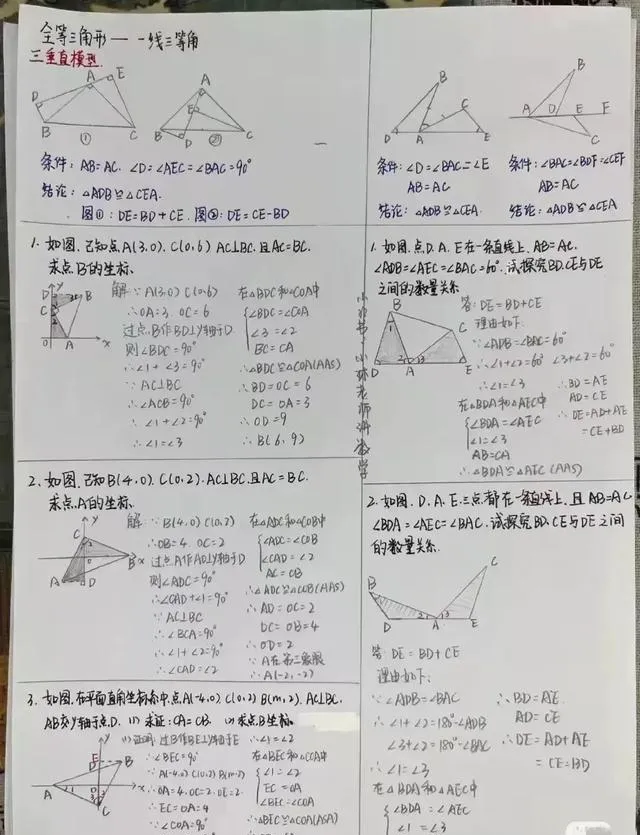 全等三角形——一线三等角
三垂直模型.
A E D B C ①
A E B D C ②
条件: AB=AC. ∠D=∠AEC=∠BAC=90°
结论: △ADB≌△CEA.
图①: DE=BD+CE. 图②: DE=CE-BD
B C D A E
B A D E F C
条件: ∠D=∠BAC=∠E
AB=AC
结论: △ADB≌△CEA.
条件: ∠BAC=∠BDF=∠CEF
AB=AC
结论: △ADB≌△CEA
1. 如图. 已知点A(3,0). C(0,6) AC⊥BC. 且AC=BC.
求点B的坐标.
解: ∵A(3,0) C(0,6)
∴OA=3 OC=6
过点B作BD⊥y轴于D
则∠BDC=90°
∴∠1+∠3=90°
∵AC⊥BC
∴∠ACB=90°
∴∠1+∠2=90°
∴∠1=∠3
在△BDC和△COA中
∠BDC=∠COA
∠3=∠2
BC=CA
∴△BDC≌△COA(AAS)
∴BD=OC=6
DC=OA=3
∴OD=9
∴B(6,9)
2. 如图. 已知B(4,0). C(0,2). AC⊥BC. 且AC=BC.
求点A的坐标.
解: ∵B(4,0) C(0,2)
∴OB=4. OC=2
过点A作AD⊥y轴于D
则∠ADC=90°
∴∠CAD+∠1=90°
∵AC⊥BC
∴∠BCA=90°
∴∠1+∠2=90°
∴∠CAD=∠2
在△ADC和△COB中
∠ADC=∠COB
∠CAD=∠2
AC=CB
∴△ADC≌△COB(AAS)
∴AD=OC=2
DC=OB=4
∴OD=2
∵A在第三象限
∴A(-2,-2)
3. 如图. 在平面直角坐标系中. 点A(-4,0) C(0,2) B(m,2). AC⊥BC.
AB交y轴于点D. (1) 求证: CA=CB. (2) 求点B坐标.
(1) 证明: 过B作BE⊥y轴于E
∴∠BEC=90°
∵A(-4,0) C(0,2) B(m,2)
∴OA=4. OC=2. OE=2
∴EC=OA=4
∴∠COA=90°
∴∠1=∠2
在△BEC和△COA中
∠1=∠2
EC=OA
∠BEC=∠COA
∴△BEC≌△COA(ASA)
1. 如图. 点D. A. E在一条直线上. AB=AC.
∠ADB=∠AEC=∠BAC=60°. 试探究BD. CE与DE
之间的数量关系
答: DE=BD+CE
理由如下:
∵∠ADB=∠BAC=60°
∴∠1+∠2=60° ∠3+∠2=60°
∴∠1=∠3
在△BDA和△AEC中
∠BDA=∠AEC
∠1=∠3
AB=CA
∴△BDA≌△AEC (AAS)
∴BD=AE
AD=CE
∴DE=AD+AE
=CE+BD
2. 如图. D. A. E. 三点都在一条直线上. 且AB=AC
∠BDA=∠AEC=∠BAC. 试探究BD. CE与DE之间
的数量关系.
答: DE=BD+CE
理由如下:
∵∠ADB=∠BAC
∴∠1+∠2=180°-∠ADB
∠3+∠2=180°-∠BAC
∴∠1=∠3
在△BDA和△AEC中
∠BDA=∠AEC
∠1=∠3
∴BD=AE.
AD=CE
∴DE=AD+AE
=CE+BD